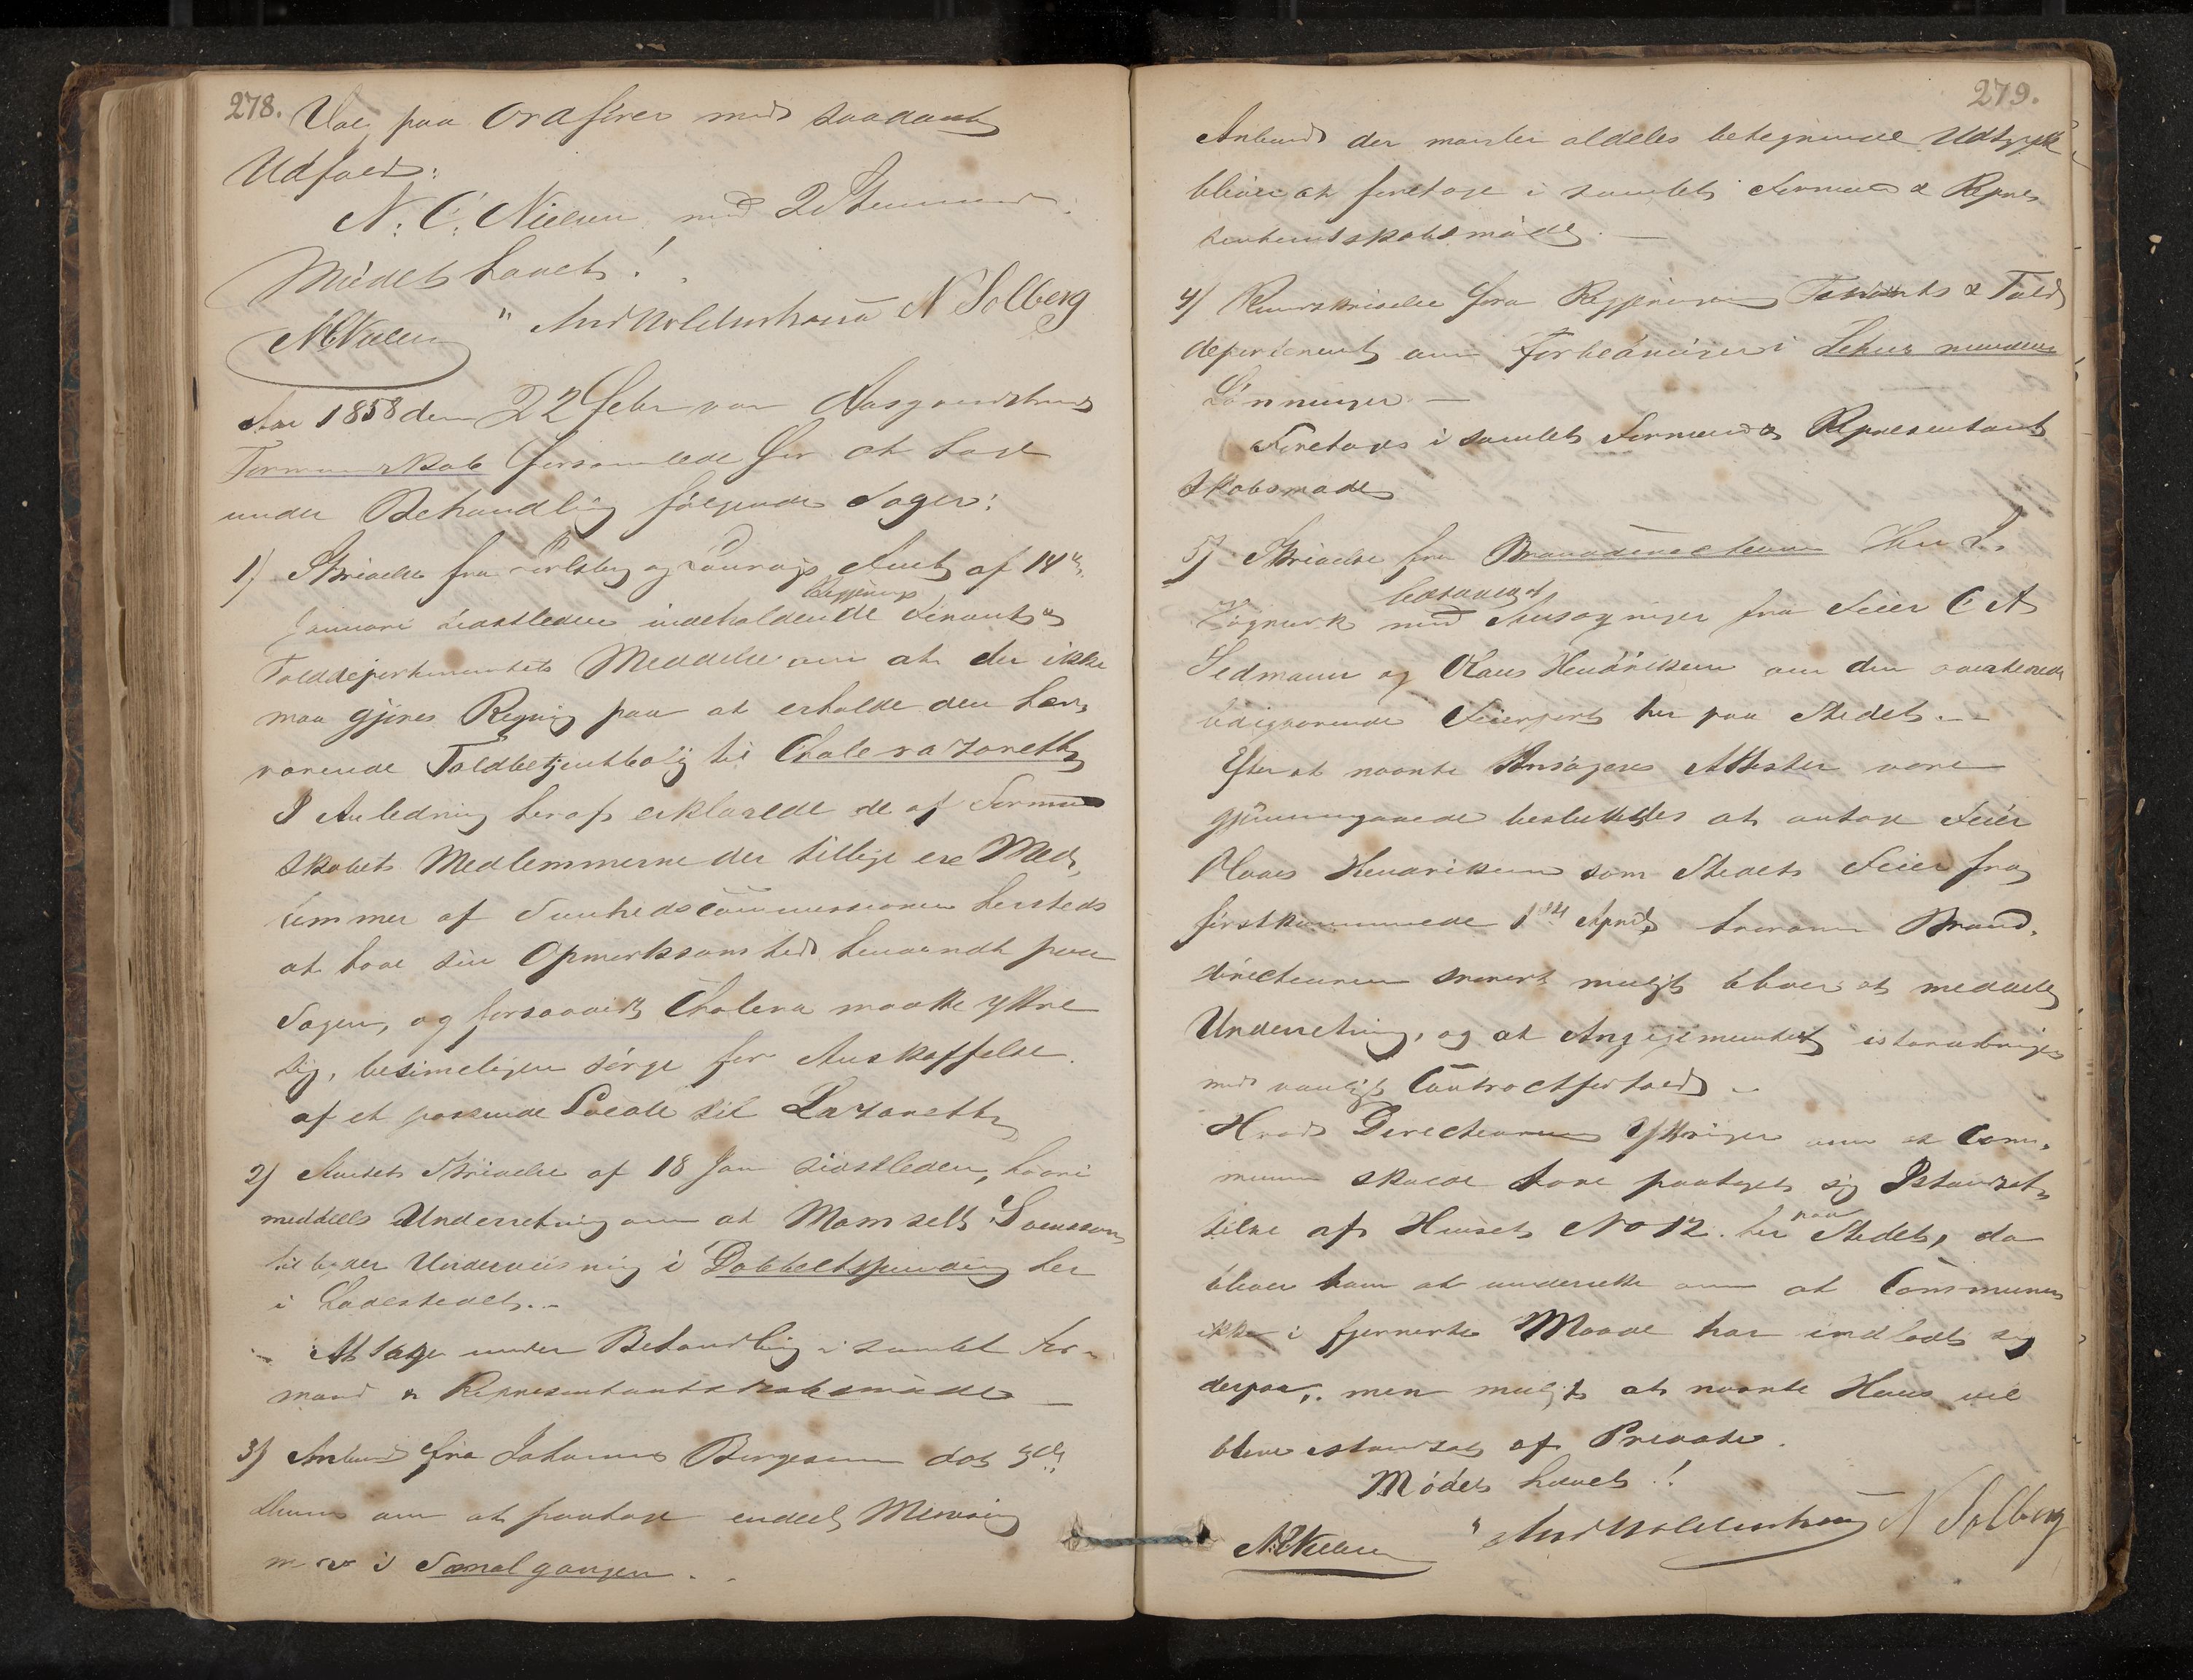 278.
Valg paa Ordfører med saadant
Udfald:
N. C. Nielsen med 2 Stemmer.
Mødet hævet!
NCNielsen " And Woldenhaug N Solberg
Aar 1858 den 22 Febr var Aasgaardstrands
Formandskab forsamlede for at tage
under Behandling følgende Sager:
1) Skrivelse fra Jarlsberg og Laurvigs Amt af 14de
Januari sidstleden indeholdende Regjerings Finants &
Tolddepartementets Meddelelse om at der ikke
maa gjøres Regning paa at erholde den hær-
værende Toldbetjentbolig til Choleralazareth
I Anledning heraf erklærede de af Formand-
skabets Medlemmerne der tillige ere Med-
lemmer af Sundhedscommissionen hersteds
at have sin Opmerksomhed henvendt paa
Sagen, og forsaavidt Cholera maatte yttre
sig, besimeligen sørge for Anskaffelse
af et passende Locale til Lazareth
2) Amtets Skrivelse af 18 Jan sidstleden, hvori
meddeels Underretning om at Mamsell Svensson
tilbyder Underviisning i Dobbeltspinding her
i Ladestedet. -
At tage under Behandling i samlet For-
mand & Repræsentantskabsmøde
3) Anbud fra Johannes Børgesen dat
om at paatage endeel
m v i Smalgangen. -
279.
Anbud der mangler aldeles betegnende Udtryk
bliver at foretage i samlet Formand & Repræ-
sentantskabsmøde. -
4) Rundskrivelse fra Regjeringens Finants & Told
departement om Forbeåninger i
Lønninger -
Foretages i samlet Formand & Repræsentant
skabsmøde
5) Skrivelse fra Branddirecteuren Hr L.
bævet med Ansøgninger fra Feier C A
Sedmann og Claus Hendriksen om den
ledigværende Feierpost her paa Stedet. -
Efter at nævnte Ansøgeres Attester vare
gjennemgaaede besluttedes at antage Feier
Claus Hendriksen som Stedets Feier fra
førstkommende 1ste April, hvorom Brand-
directeuren snarest muligt bliver at meddele
Underretning, og at Angagementet istandbringes
med vanligt Contractforhold -
Hvad Directeurens Yttringer om at Com-
munen skulde have paataget sig Istandsæt-
telse af Huset No 12. her paa Stedet, da
bliver ham at underrette om at Communen
ikke i fjerneste Maade har indladt sig
derpaa, men muligt at nævnte Huus vil
blive istandsat af Private.
Mødet hævet!
NCNielsen " And Woldenhaug N Solberg